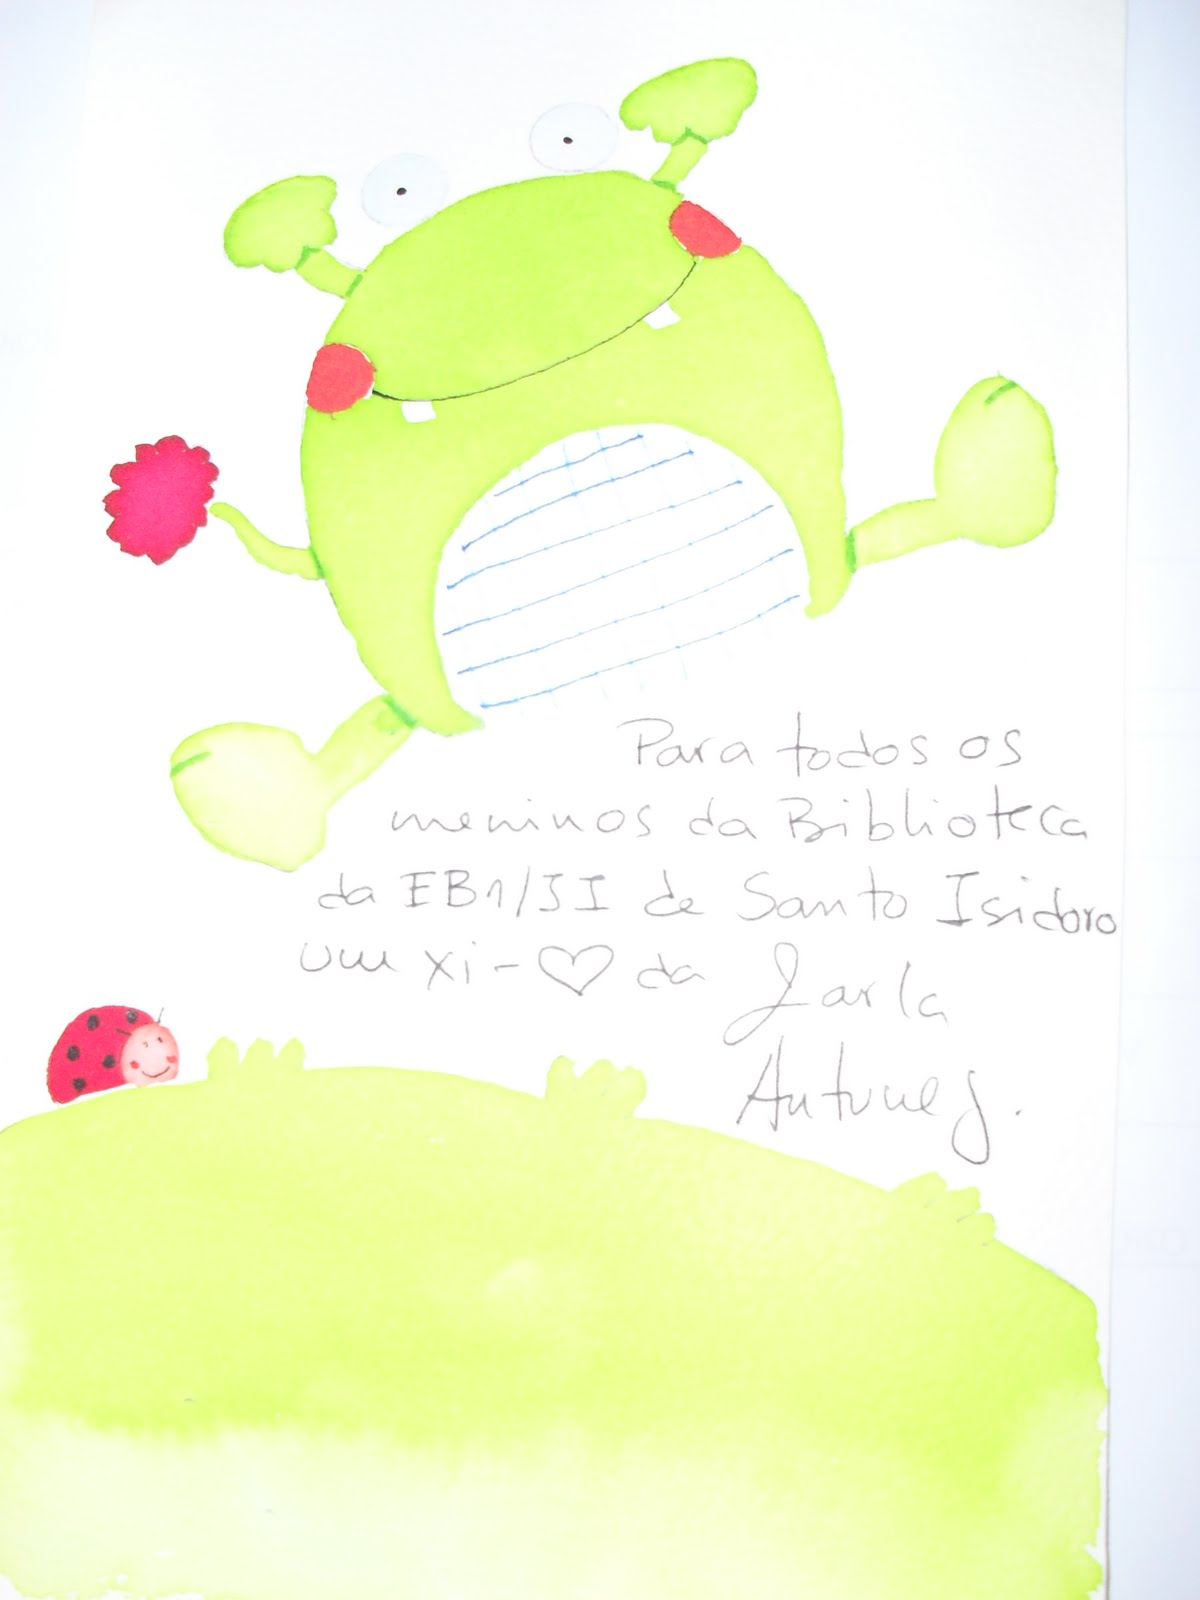 Para todos os
meninos da Biblioteca
da EB1/JI de Santo Isidoro
um xi-♡ da Carla
Antunes.